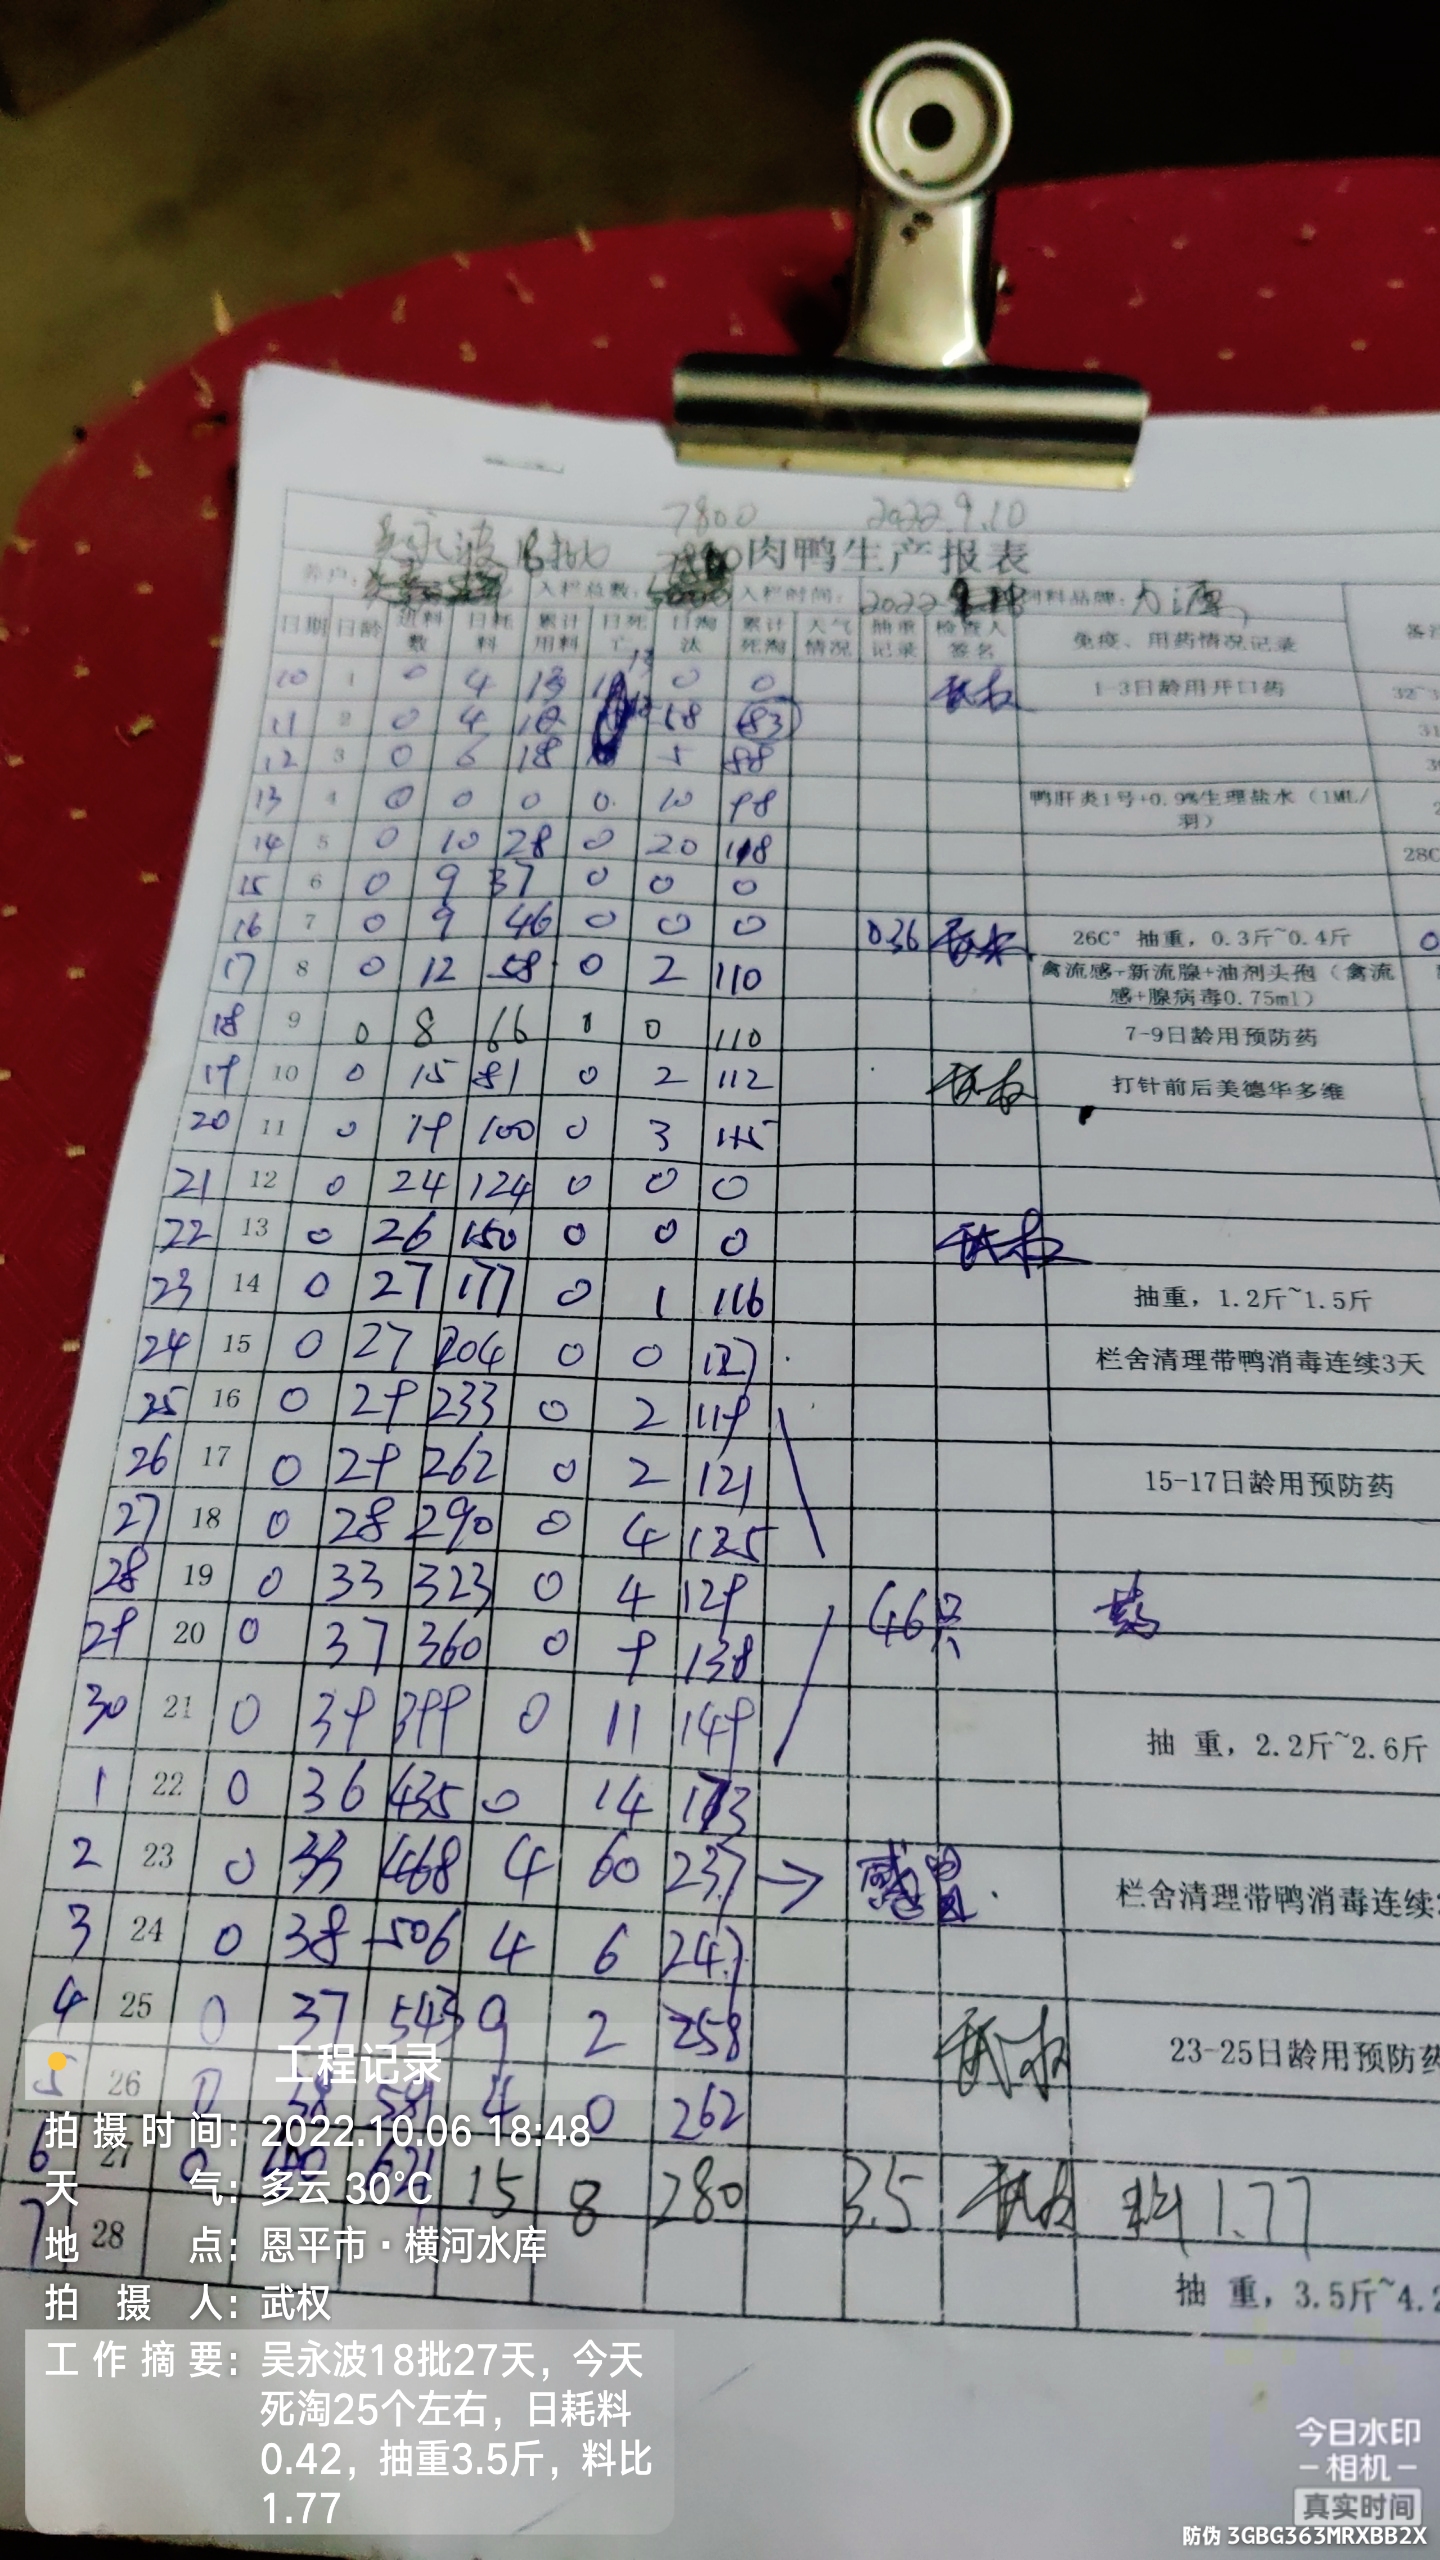 7800 2022.9.10
吴永波18批 肉鸭生产报表
养户: 入栏总数: 入栏时间: 2022 饲料品牌:
日期 日龄 进料数 日耗料 累计用料 日死亡 日淘汰 累计死淘 天气情况 抽重记录 检查人签名 免疫、用药情况记录
10 1 0 4 0 0 武权 1-3日龄用开口药
11 2 0 4 68 83 31
12 3 0 6 18 5 88
13 4 0 0 0 0 10 98 鸭肝炎1号+0.9%生理盐水(1ML/羽)
14 5 0 10 28 0 20 118 28C
15 6 0 9 37 0 0 0
16 7 0 9 46 0 0 0 036 武权 26C° 抽重，0.3斤~0.4斤
17 8 0 12 58 0 2 110 禽流感+新流腺+油剂头孢（禽流感+腺病毒0.75ml）
18 9 0 8 66 0 110 7-9日龄用预防药
19 10 0 15 81 0 2 112 武权 打针前后美德华多维
20 11 0 19 100 0 3 115
21 12 0 24 124 0 0 0
22 13 0 26 150 0 0 0 武权
23 14 0 27 177 0 1 116 抽重，1.2斤~1.5斤
24 15 0 27 204 0 0 栏舍清理带鸭消毒连续3天
25 16 0 29 233 0 2 119
26 17 0 29 262 0 2 121 15-17日龄用预防药
27 18 0 28 290 0 4 125
28 19 0 33 323 0 4 129 46只 药
29 20 0 37 360 0 9 138
30 21 0 39 399 0 11 149 抽 重，2.2斤~2.6斤
1 22 0 36 435 0 14 173
2 23 0 33 468 4 60 237 → 感冒 栏舍清理带鸭消毒连续
3 24 0 38 506 4 6 247
4 25 0 37 543 9 2 258 武权 23-25日龄用预防药
5 26 0 38 581 4 0 262
6 27 0 40 621 15 8 280 3.5 武权 料1.77
7 28 抽 重，3.5斤~4.2
工程记录
拍摄时间：2022.10.06 18:48
天气：多云 30℃
地点：恩平市·横河水库
拍摄人：武权
工作摘要：吴永波18批27天，今天
死淘25个左右，日耗料
0.42，抽重3.5斤，料比
1.77
今日水印
相机
真实时间
防伪 3GBG363MRXBB2X